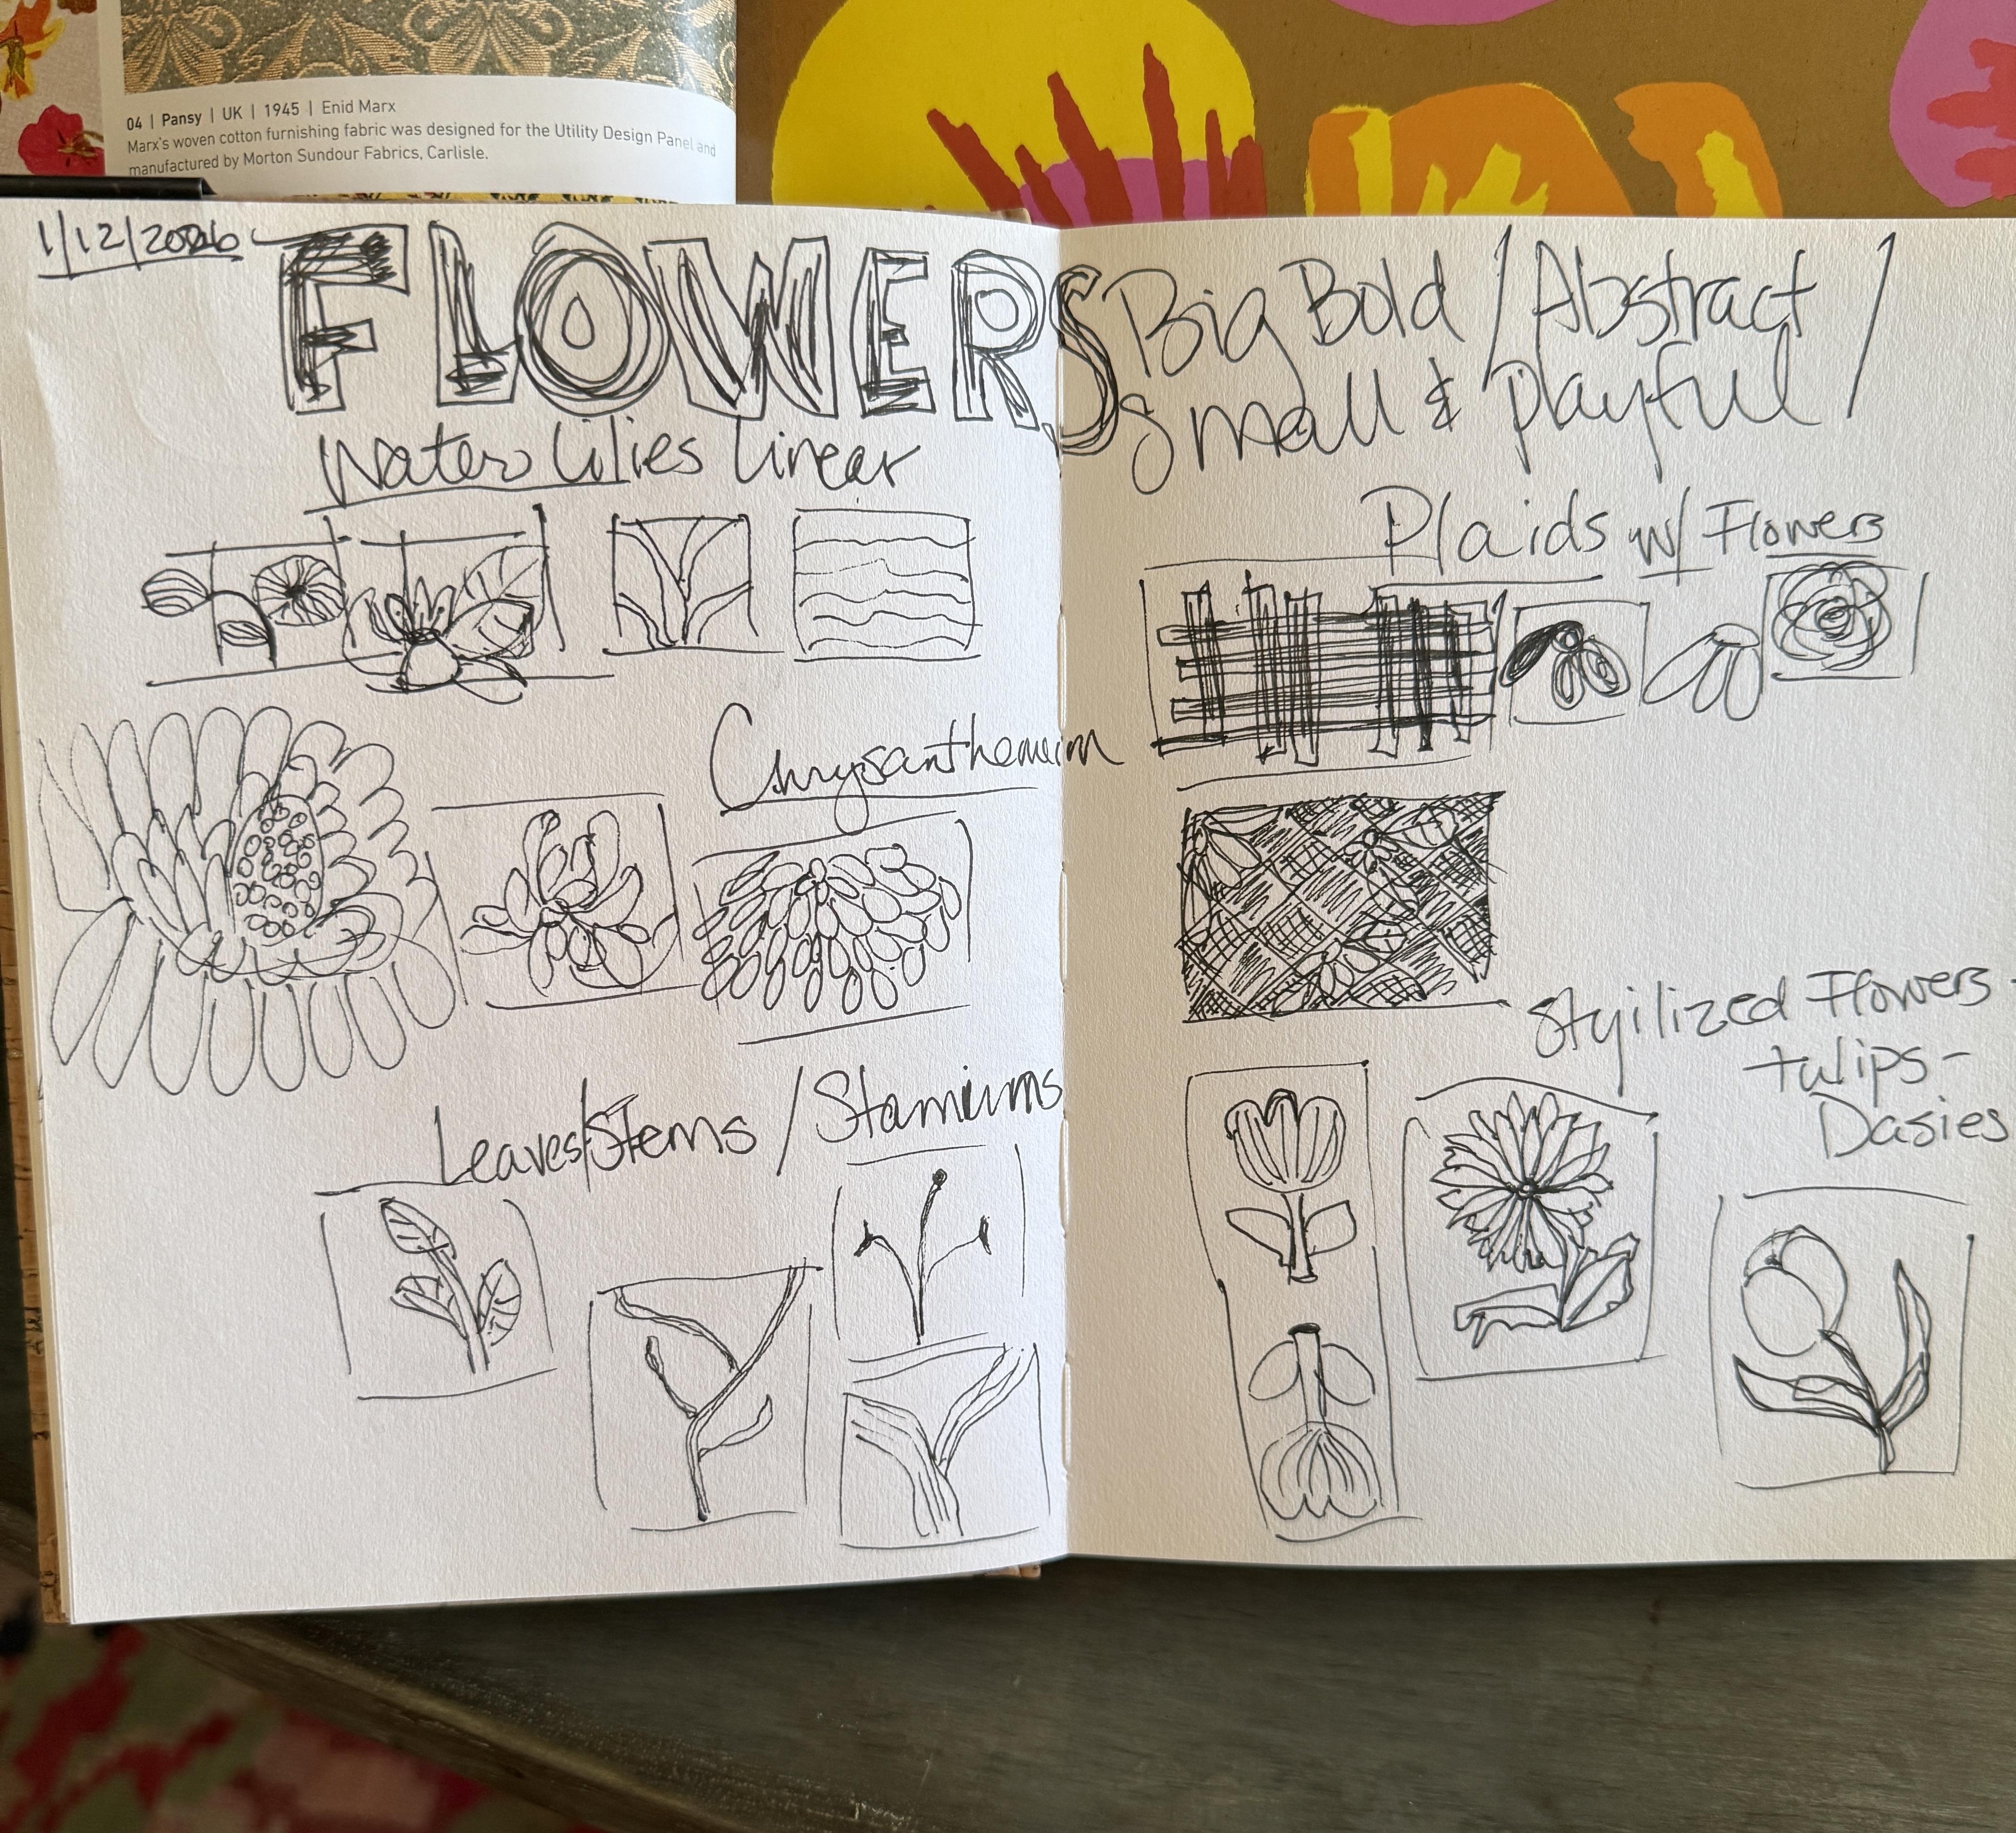 04 | Pansy | UK | 1945 | Enid Marx
Marx's woven cotton furnishing fabric was designed for the Utility Design Panel and
manufactured by Morton Sundour Fabrics, Carlisle.
1/12/2026
FLOWERS
Water Lilies Linear
Chrysanthemum
Leaves/Stems / Stamiums
Big Bold / Abstract /
Small & Playful
Plaids w/ Flowers
Stylilized Flowers -
tulips -
Dasies